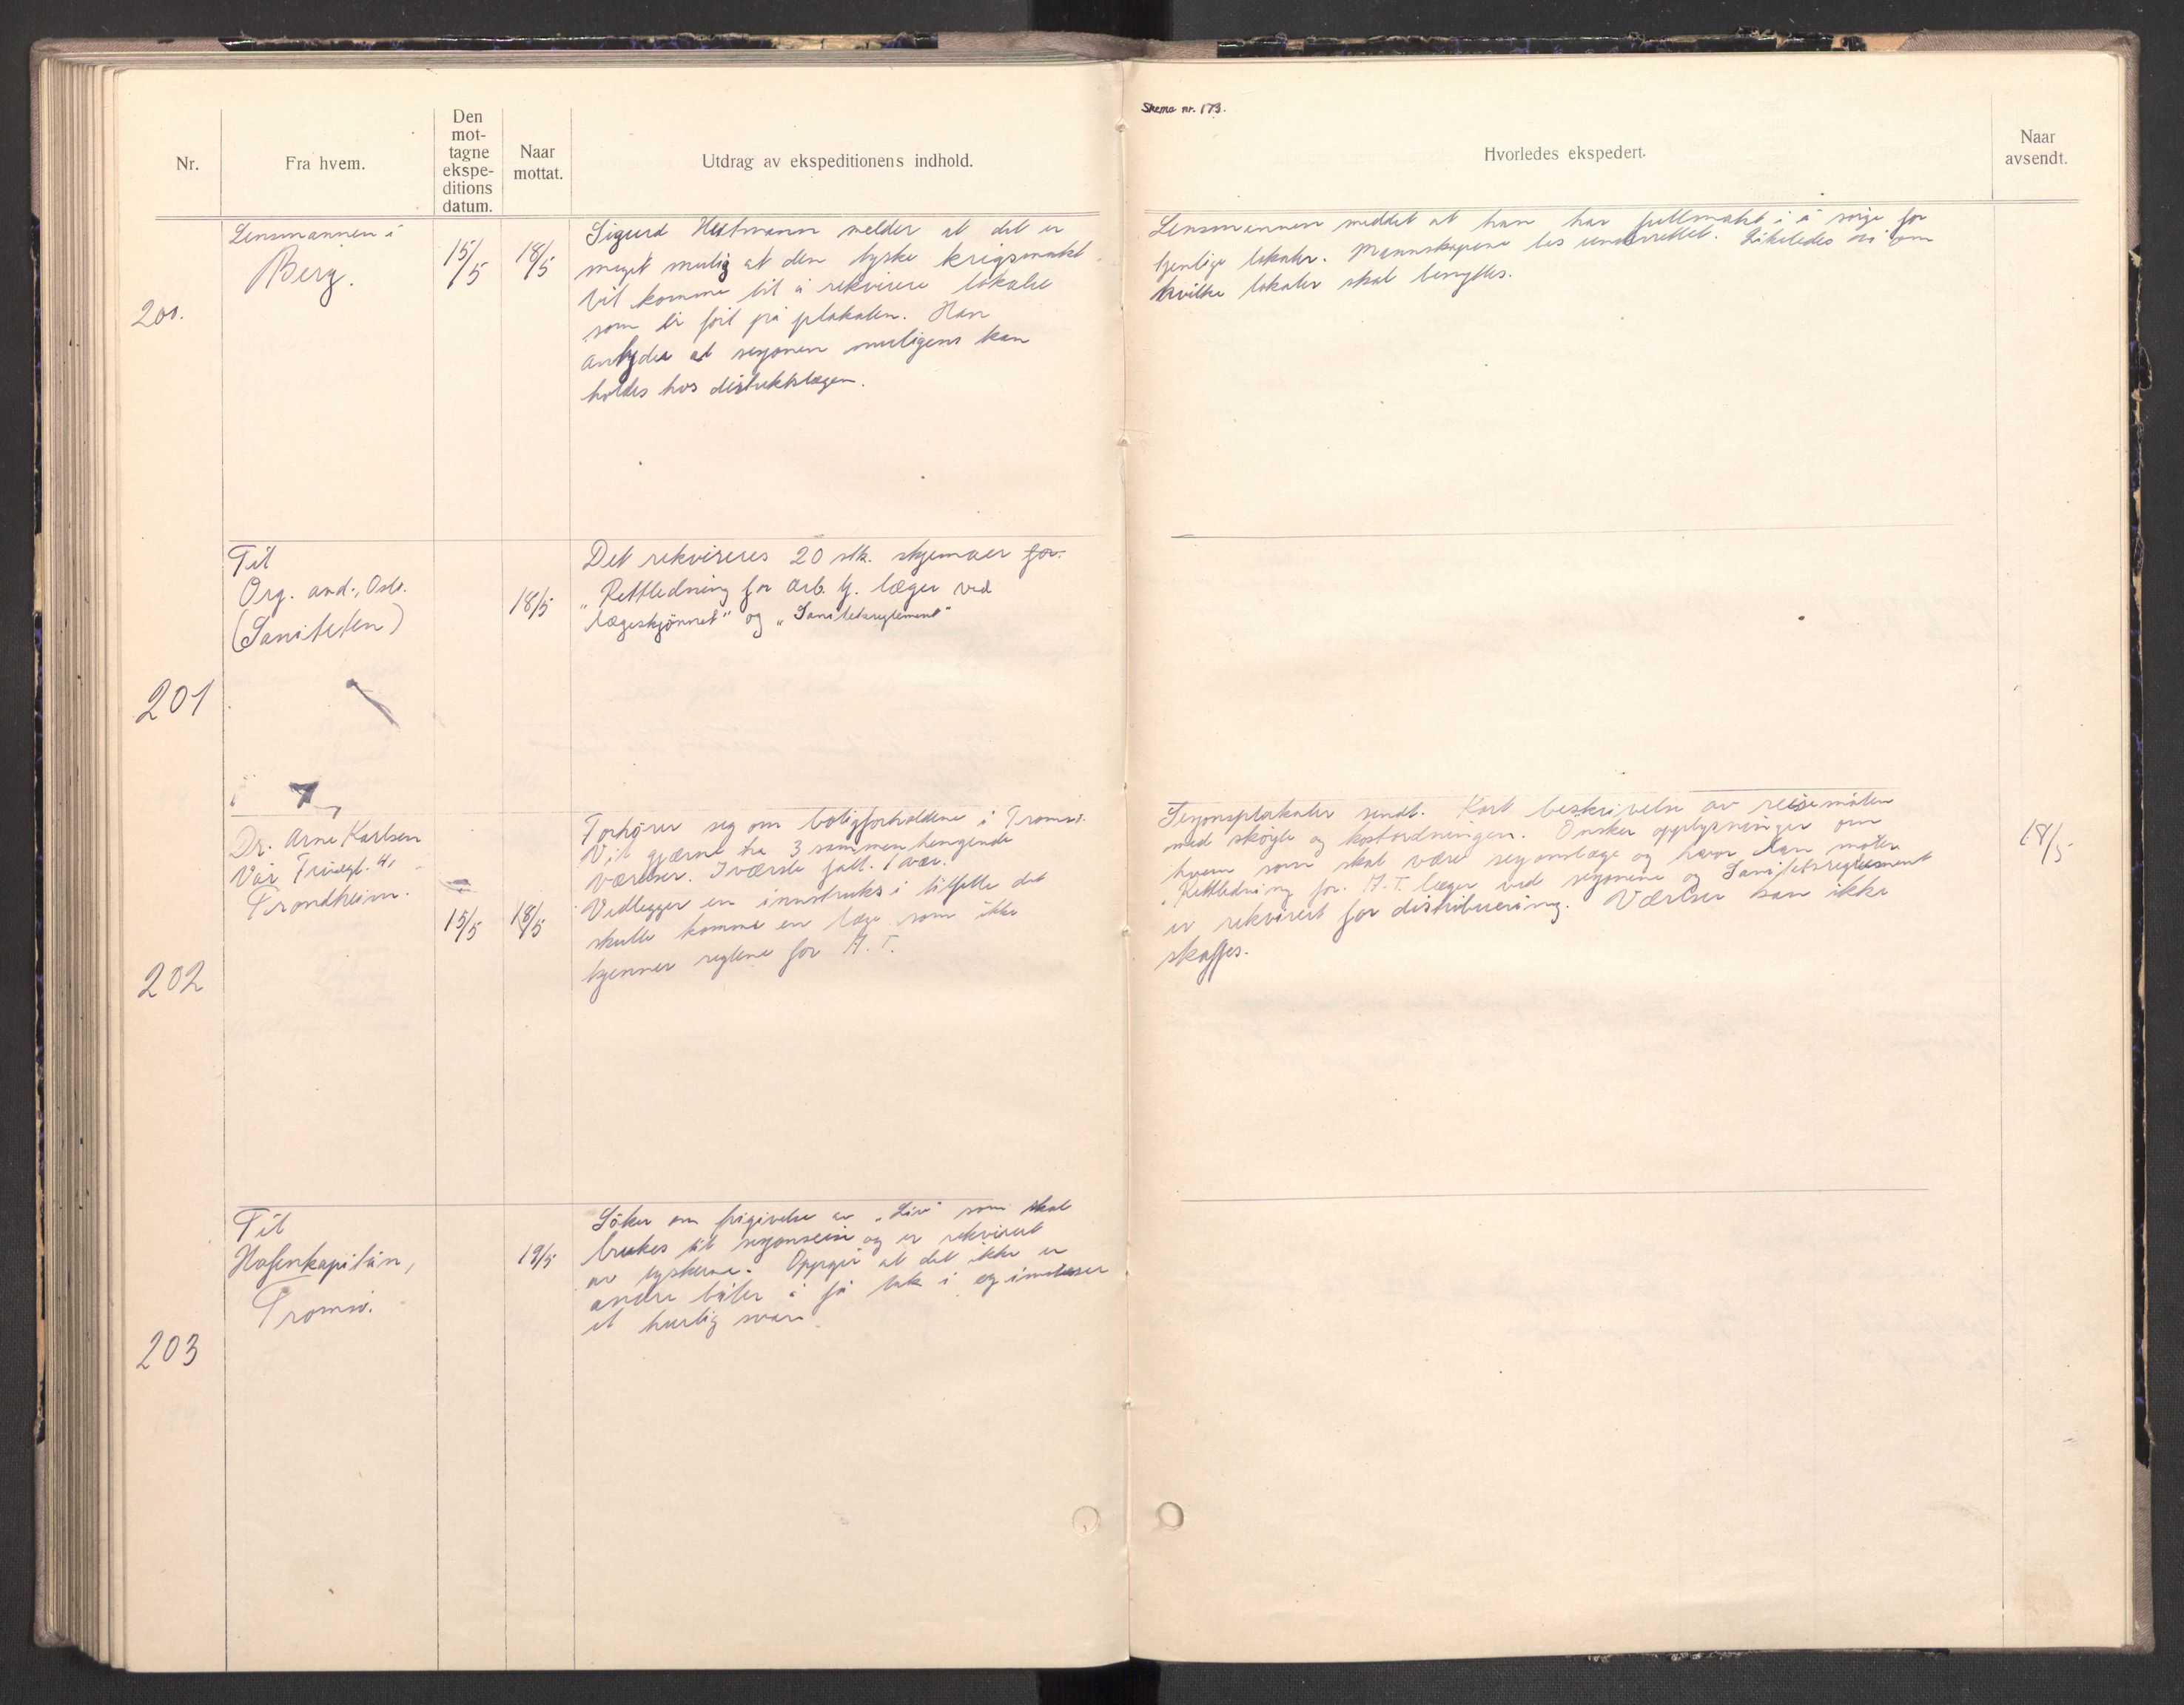 Skema nr. 173.
Nr.
Fra hvem.
Den
mot-
tagne
ekspe-
ditions
datum.
Naar
mottat.
Utdrag av ekspeditionens indhold.
Hvorledes ekspedert.
Naar
avsendt.
200.
Lensmannen i
Berg.
15/5
18/5
Sigurd melder at det er
meget mulig at den tyske krigsmakt
vil komme til å rekvirere lokalet
som er ført på plakaten. Han
antyder at sesjonen muligens kan
holdes hos distriktslægen.
Lensmannen meddelt at han har fullmakt i å sørge for
tjenlige lokaler. Mannskapene bes underrettet. Likeledes vi om
hvilke lokaler skal benyttes.
201
Til
Org. avd., Oslo.
(Saniteten)
18/5
Det rekvireres 20 stk. skjemaer for.
"Rettledning for Arb. tj. læger ved
lægeskjønnet" og "Sanitetsreglement"
202
Dr. Arne Karlsen
Vår Fruegt. 4,
Trondheim.
15/5
18/5
Forhører seg om boligforholdene i Tromsø.
Vil gjærne ha 3 sammenhengende
værelser. I værste fall. 1 vær.
Vedlegger en innstruks i tilfelle det
skulle komme en læge som ikke
kjenner reglene for A.T.
Sesjonsplakater sendt. Kort beskrivelse av reisemåten
med skøyte og kostordningen. Ønsker opplysninger om
hvem som skal være sesjonslæge og hvor han møter
"Rettledning for. A.T. læger ved sesjonene og Sanitetsreglement
er rekvirert for distribuering. Værelser kan ikke
skaffes.
18/5
203
Til
Hafenkapitän,
Tromsø.
19/5
Søker om frigivelse av "Liv" som skal
brukes til sesjonsreise og er rekvirert
av tyskerne. Oppgir at det ikke er
andre båter å få tak i og imøteser
et hurtig svar.